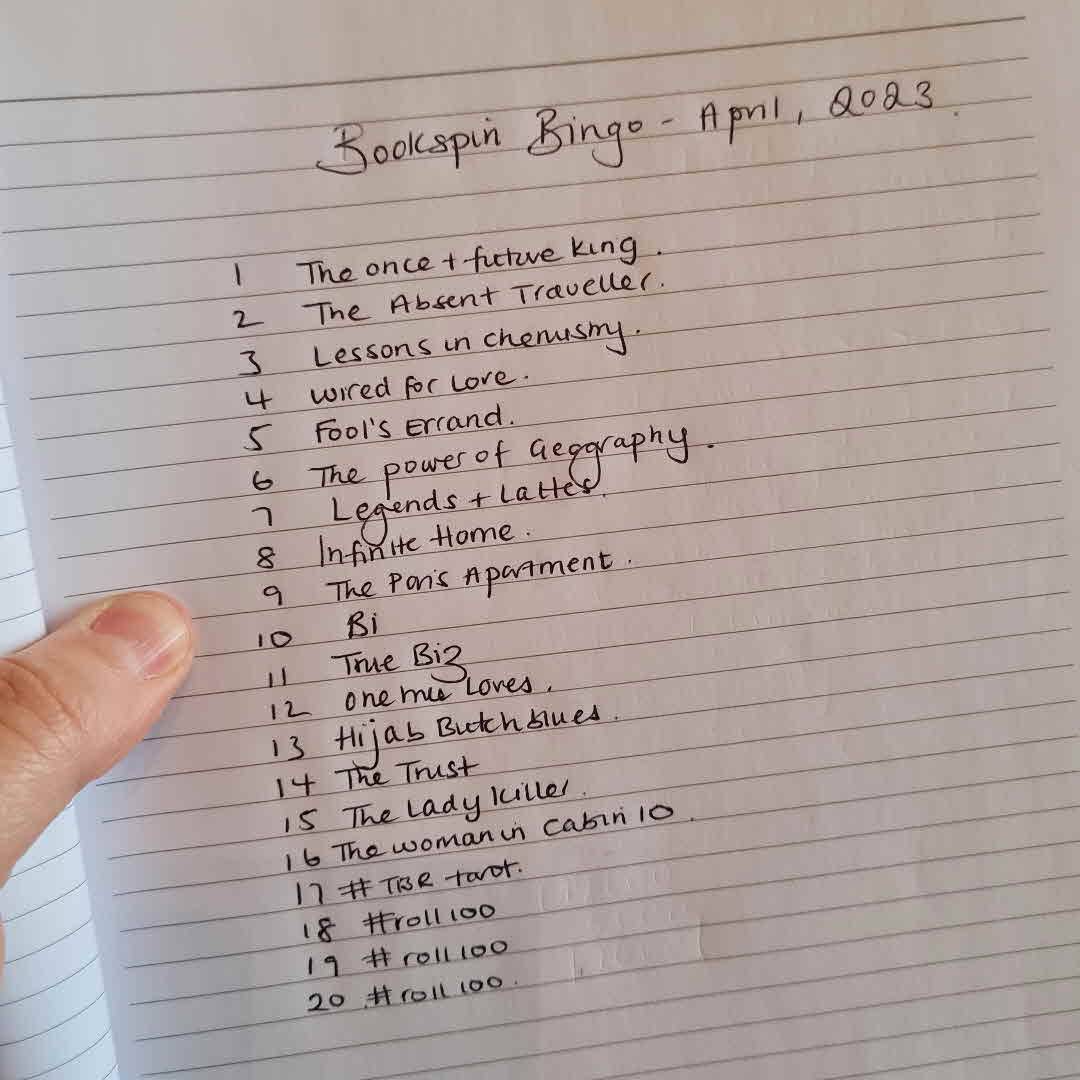 Bookspin Bingo - April, 2023.
1 The once + future king.
2 The Absent Traveller.
3 Lessons in chemistry.
4 wired for Love.
5 Fool's Errand.
6 The power of Geography.
7 Legends + Lattes.
8 Infinite Home.
9 The Paris Apartment.
10 Bi
11 True Biz
12 one true Loves.
13 Hijab Butch blues.
14 The Trust
15 The Lady Killer.
16 The woman in Cabin 10.
17 # TBR tarot.
18 #roll 100
19 # roll 100
20 # roll 100.